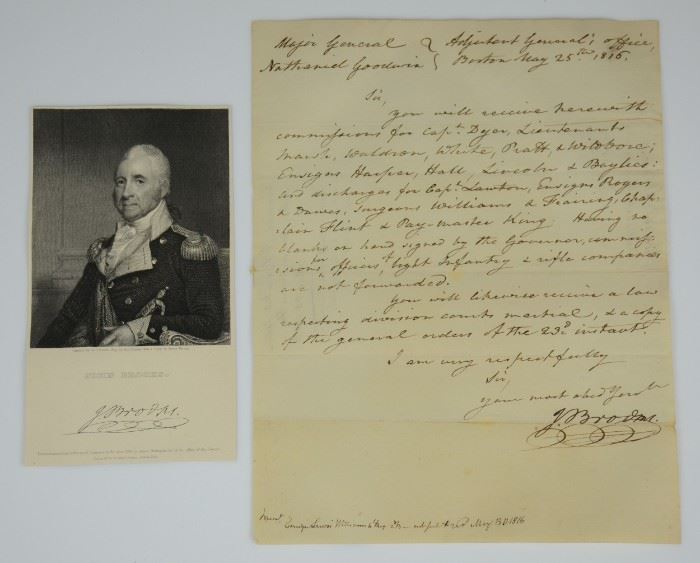 JOHN BROOKS.
J Brooks.
Major General } Adjutant General's office,
Nathaniel Goodwin } Boston May 25th 1816.
Sir,
you will receive herewith
commissions for Capt. Dyer, Lieutenants
Marsh, Waldron, White, Pratt, & Wildbore;
Ensigns Harper, Hall, Lincoln & Baylies:
and discharges for Capt. Lawton, Ensigns Rogers
& Dawes, Surgeons Williams & Fearing, Chap-
lain Flint & Pay-master King. Having no
blanks on hand signed by the Governor, commis-
sions for officers of light Infantry & rifle companies
are not forwarded.
You will likewise receive a law
respecting division courts martial, & a copy
of the general orders of the 23d instant.
I am very respectfully
Sir,
your most obed
J Brooks.
Williams May 30 1816